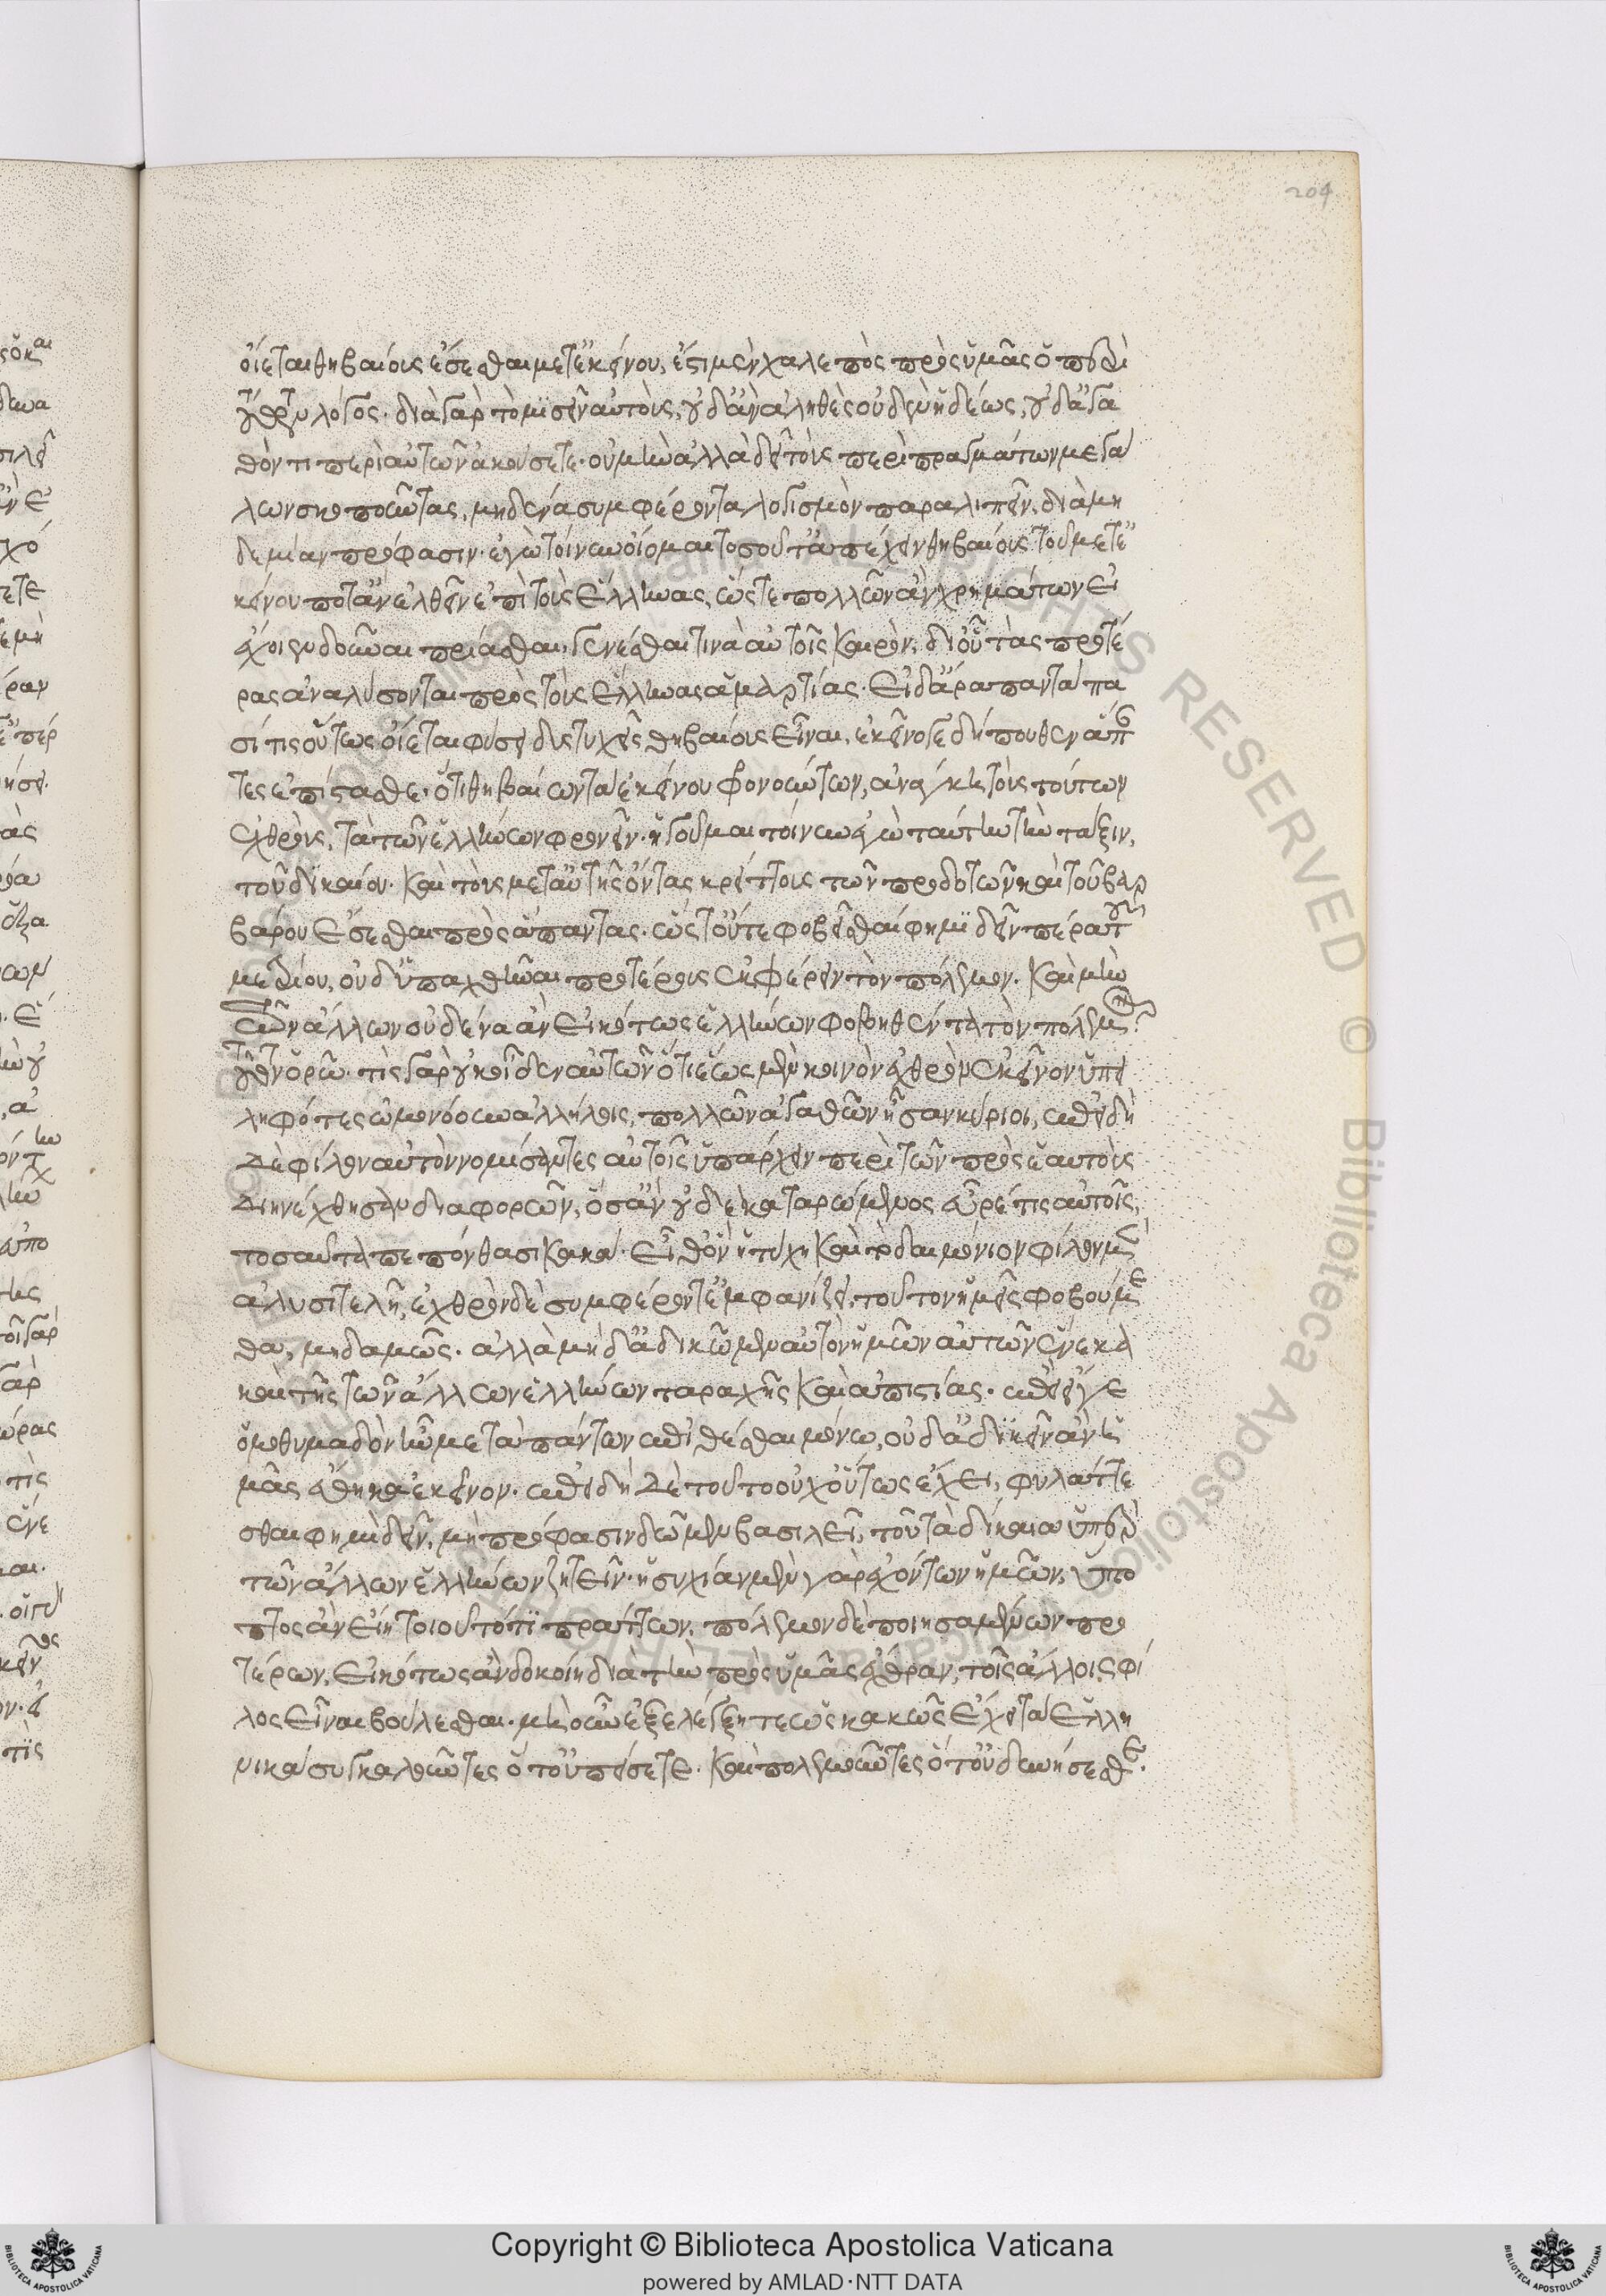 204
οἴεται θηβαίοις ἔσεσθαι μετ' ἐκείνου, ἔστι μὲν χαλεπὸς πρὸς ὑμᾶς ὁ περὶ
τούτων λόγος. διὰ γὰρ τὸ μισεῖν αὐτοὺς, οὐδ' ἂν ἀληθὲς οὐδὲν ἡδέως, οὐδ' ἀγα
θόν τι περὶ αὐτῶν ἀκούσετε. οὐ μὴν ἀλλὰ δεῖ τοὺς περὶ πραγμάτων μεγά
λων σκοποῦντας, μηδένα συμφέροντα λογισμὸν παραλιπεῖν, διὰ μη
δεμίαν πρόφασιν. ἐγὼ τοίνυν οἴομαι τοσοῦτ' ἀπέχειν θηβαίους τοῦ μετ' ἐ
κείνου ποτ' ἂν ἐλθεῖν ἐπὶ τοὺς ἕλληνας, ὥστε πολλῶν ἂν χρημάτων εἰ
ἔχοιεν δοῦναι πρίασθαι, γενέσθαι τινὰ αὐτοῖς καιρὸν, δι' οὗ τὰς προτέ
ρας ἀναλύσονται πρὸς τοὺς ἕλληνας ἁμαρτίας. εἰ δ' ἄρα παντάπα
σί τις οὕτως οἴεται φύσει δυστυχεῖς θηβαίους εἶναι, ἐκεῖνό γε δήπουθεν ἅπαν
τες ἐπίστασθε. ὅτι θηβαίων τἀκείνου φρονούντων, ἀνάγκη τοὺς τούτων
ἐχθροὺς, τὰ τῶν ἑλλήνων φρονεῖν. ἡγοῦμαι τοίνυν ἐγὼ ταύτην τὴν τάξιν,
τοῦ δικαίου. καὶ τοὺς μετ' αὐτῆς ὄντας κρείττους τῶν προδοτῶν καὶ τοῦ βαρ
βάρου ἔσεσθαι πρὸς ἅπαντας. ὥστ' οὔτε φοβεῖσθαί φημι δεῖν πέρα τοῦ
μετρίου, οὐδ' ὑπαχθῆναι προτέρους ἐκφέρειν τὸν πόλεμον. καὶ μὴν
οὐδὲ τῶν ἄλλων οὐδένα ἂν εἰκότως ἑλλήνων φοβηθέντα τὸν πόλεμον
τοῦτον ὁρῶ. τίς γὰρ οὐκ οἶδεν αὐτῶν ὅτι ἕως μὲν κοινὸν ἐχθρὸν ἐκεῖνον ὑπει
ληφότες ὡμονόουν ἀλλήλοις, πολλῶν ἀγαθῶν ἦσαν κύριοι, ἐπειδὴ
δὲ φίλον αὐτὸν νομίσαντες αὐτοῖς ὑπάρχειν περὶ τῶν πρὸς ἑαυτοὺς
διηνέχθησαν διαφορῶν, ὅσ' ἂν οὐδὲ καταρώμενος εὗρέ τις αὐτοῖς,
τοσαῦτα πεπόνθασι κακά. εἶθ' ὃν ἡ τύχη καὶ τὸ δαιμόνιον φίλον μὲν
ἀλυσιτελῆ, ἐχθρὸν δὲ συμφέροντ' ἐμφανίζει, τοῦτον ἡμεῖς φοβούμε
θα, μηδαμῶς. ἀλλὰ μηδ' ἀδικῶμεν αὐτὸν ἡμῶν αὐτῶν ἕνεκα
καὶ τῆς τῶν ἄλλων ἑλλήνων ταραχῆς καὶ ἀπιστίας. ἐπεὶ εἴ γε
ὁμοθυμαδὸν ἦν μετὰ πάντων ἐπιθέσθαι μόνῳ, οὐδ' ἀδικεῖν ἂν ἡ
μᾶς ἔθηκα ἐκεῖνον. ἐπειδὴ δὲ τοῦτο οὐχ οὕτως ἔχει, φυλάττε
σθαι φημὶ δεῖν, μὴ πρόφασιν δῶμεν βασιλεῖ, τοῦ τὰ δίκαια ὑπὲρ
τῶν ἄλλων ἑλλήνων ζητεῖν. ἡσυχίαν μὲν γὰρ ἐχόντων ἡμῶν, ὕπο
πτος ἂν εἴη τοιοῦτό τι πράττων. πόλεμον δὲ ποιησαμένων προ
τέρων, εἰκότως ἂν δοκοίη διὰ τὴν πρὸς ὑμᾶς ἔχθραν, τοῖς ἄλλοις φί
λος εἶναι βούλεσθαι. μὴ οὖν ἐξελέγξητε ὡς κακῶς ἔχει τὰ ἑλλη
νικὰ συγκαλοῦντες ὅτ' οὐ πείσετε. καὶ πολεμοῦντες ὅτ' οὐ δυνήσεσθε.
Copyright © Biblioteca Apostolica Vaticana
powered by AMLAD·NTT DATA